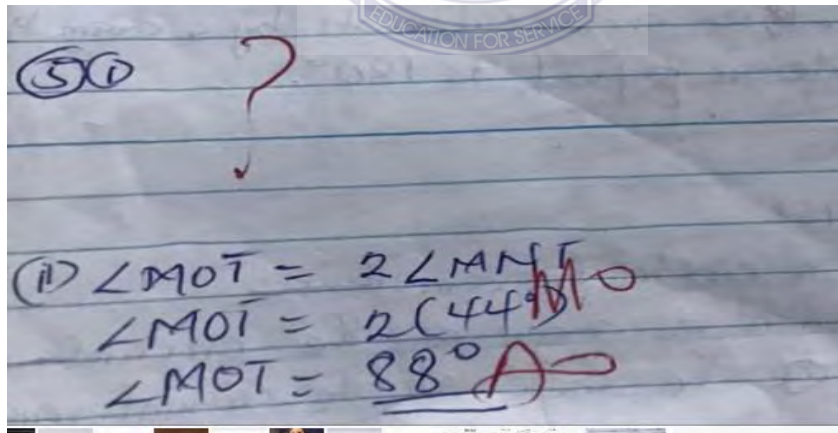 EDUCATION FOR SERVICE
5 i ?
(ii) ∠MOT = 2∠MNT M0
∠MOT = 2(44°)
∠MOT = 88° A0